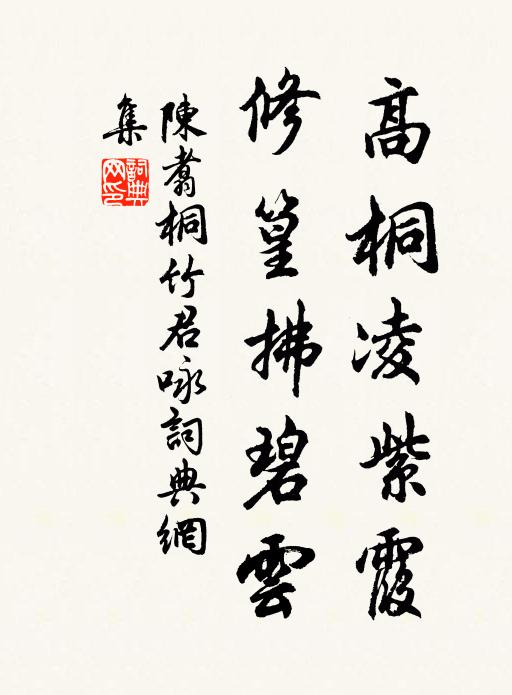 高桐凌紫霞
修篁拂碧雲
陳翥桐竹君咏詞典網
集
詞典
网印